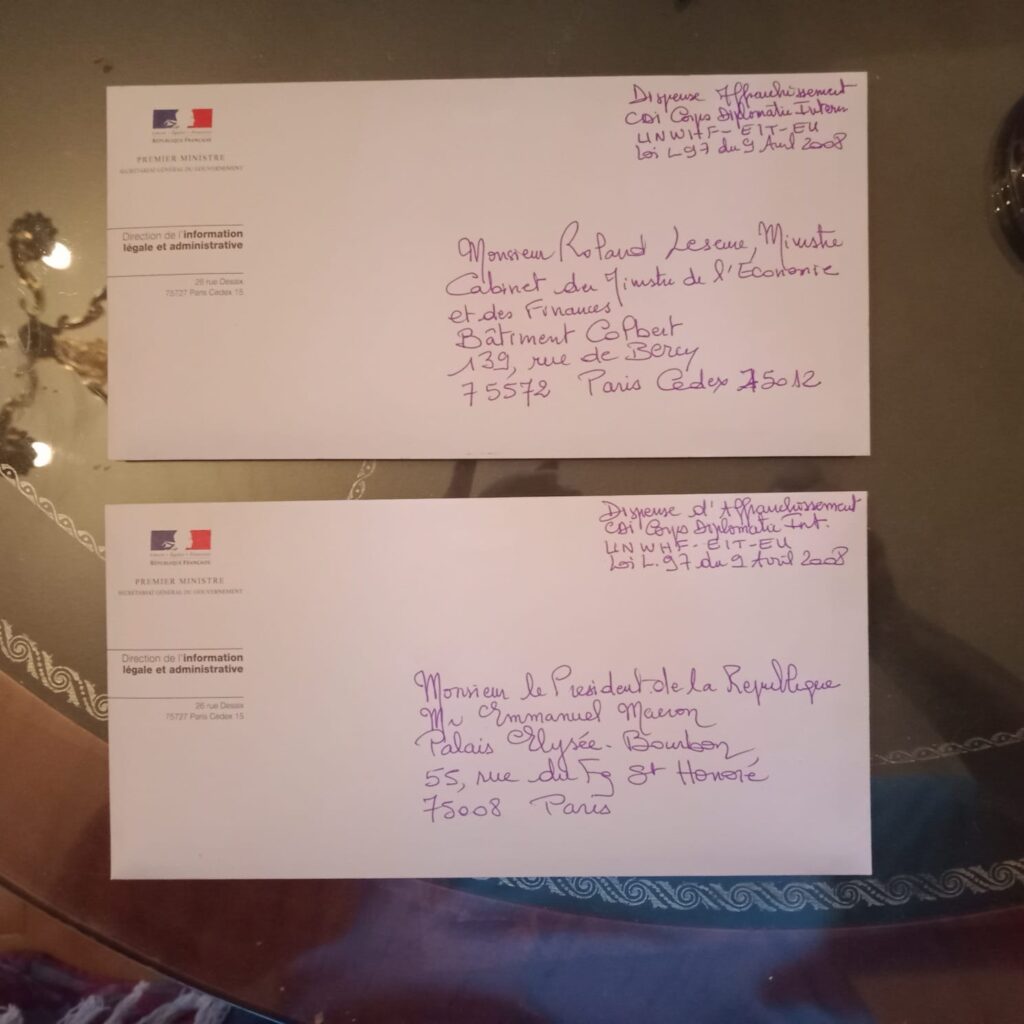 RÉPUBLIQUE FRANÇAISE
PREMIER MINISTRE
SECRÉTARIAT GÉNÉRAL DU GOUVERNEMENT
Direction de l'information
légale et administrative
26 rue Desaix
75727 Paris Cedex 15
Dispense Affranchissement
CDI Corps Diplomatic Intern
UNWHF-EIT-EU
Loi L97 du 9 Avril 2008
Monsieur Roland Lescure, Ministre
Cabinet du Ministre de l'Economie
et des Finances
Bâtiment Colbert
139, rue de Bercy
75572 Paris Cedex 75012
RÉPUBLIQUE FRANÇAISE
PREMIER MINISTRE
SECRÉTARIAT GÉNÉRAL DU GOUVERNEMENT
Direction de l'information
légale et administrative
26 rue Desaix
75727 Paris Cedex 15
Dispense d'Affranchissement
CDI Corps Diplomatic Int.
UNWHF-EIT-EU
Loi L.97 du 9 Avril 2008
Monsieur le President de la Republique
Mr Emmanuel Macron
Palais Elysée-Bourbon,
55, rue du Fg St Honoré
75008 Paris